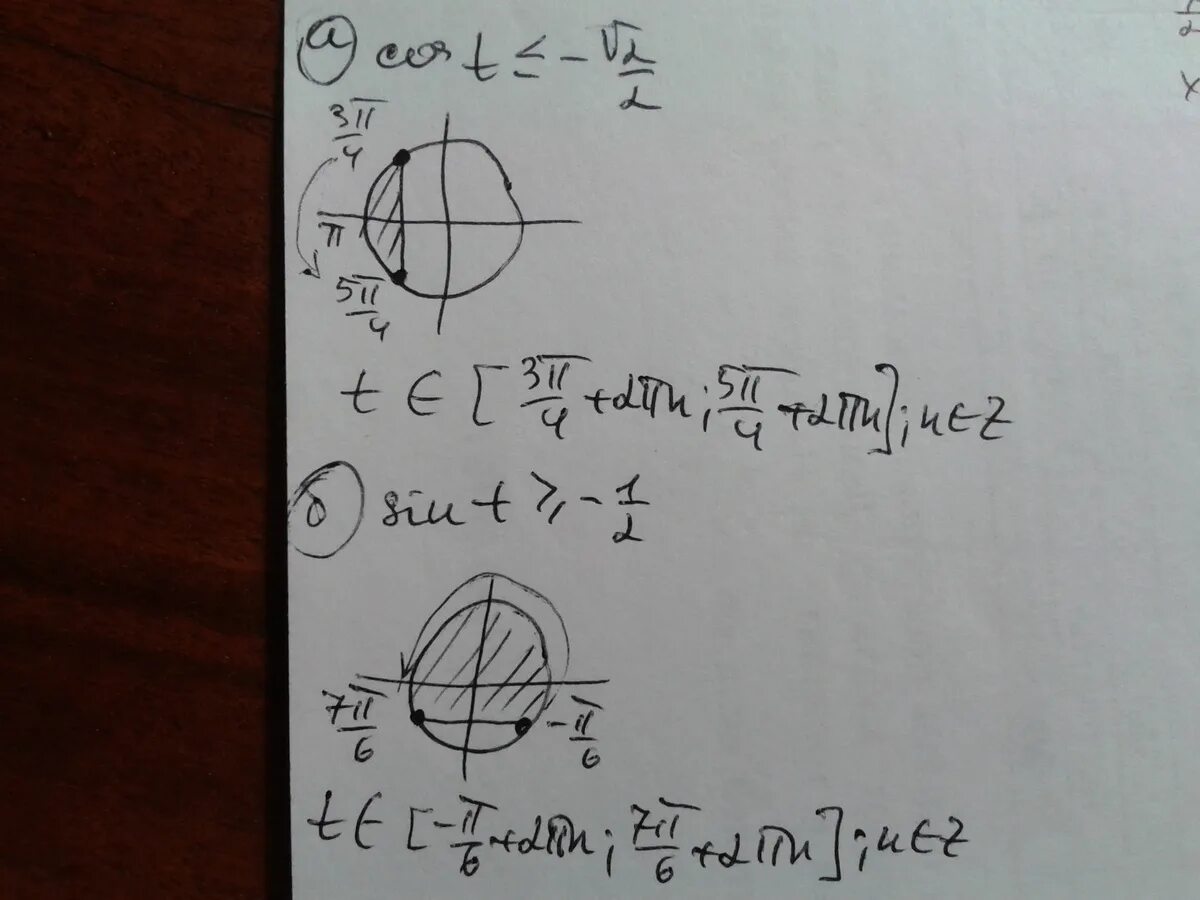 а) cos t ≤ -√2/2
3π/4
π
5π/4
t ∈ [3π/4 + 2πn; 5π/4 + 2πn]; n ∈ Z
б) sin t ≥ -1/2
7π/6 -π/6
t ∈ [-π/6 + 2πn; 7π/6 + 2πn]; n ∈ Z